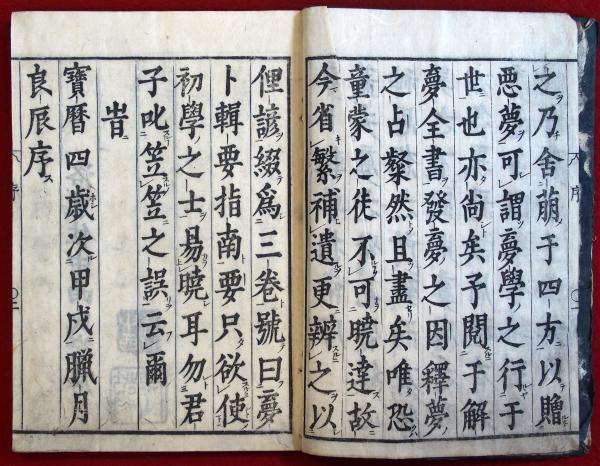 之乃舍萠于四方以贈
悪夢可謂夢學之行于
世也亦尚矣予閲于解
夢全書發夢之因釋夢
之占粲然且盡矣唯恐
童蒙之徒不可曉達故
今省繁補遺更辧之以
俚諺綴爲三卷號曰夢
卜輯要指南要只欲使
初學之士易曉耳勿君
子叱笠笠之誤云爾
旹
寶暦四歳次甲戌臘月
良辰序